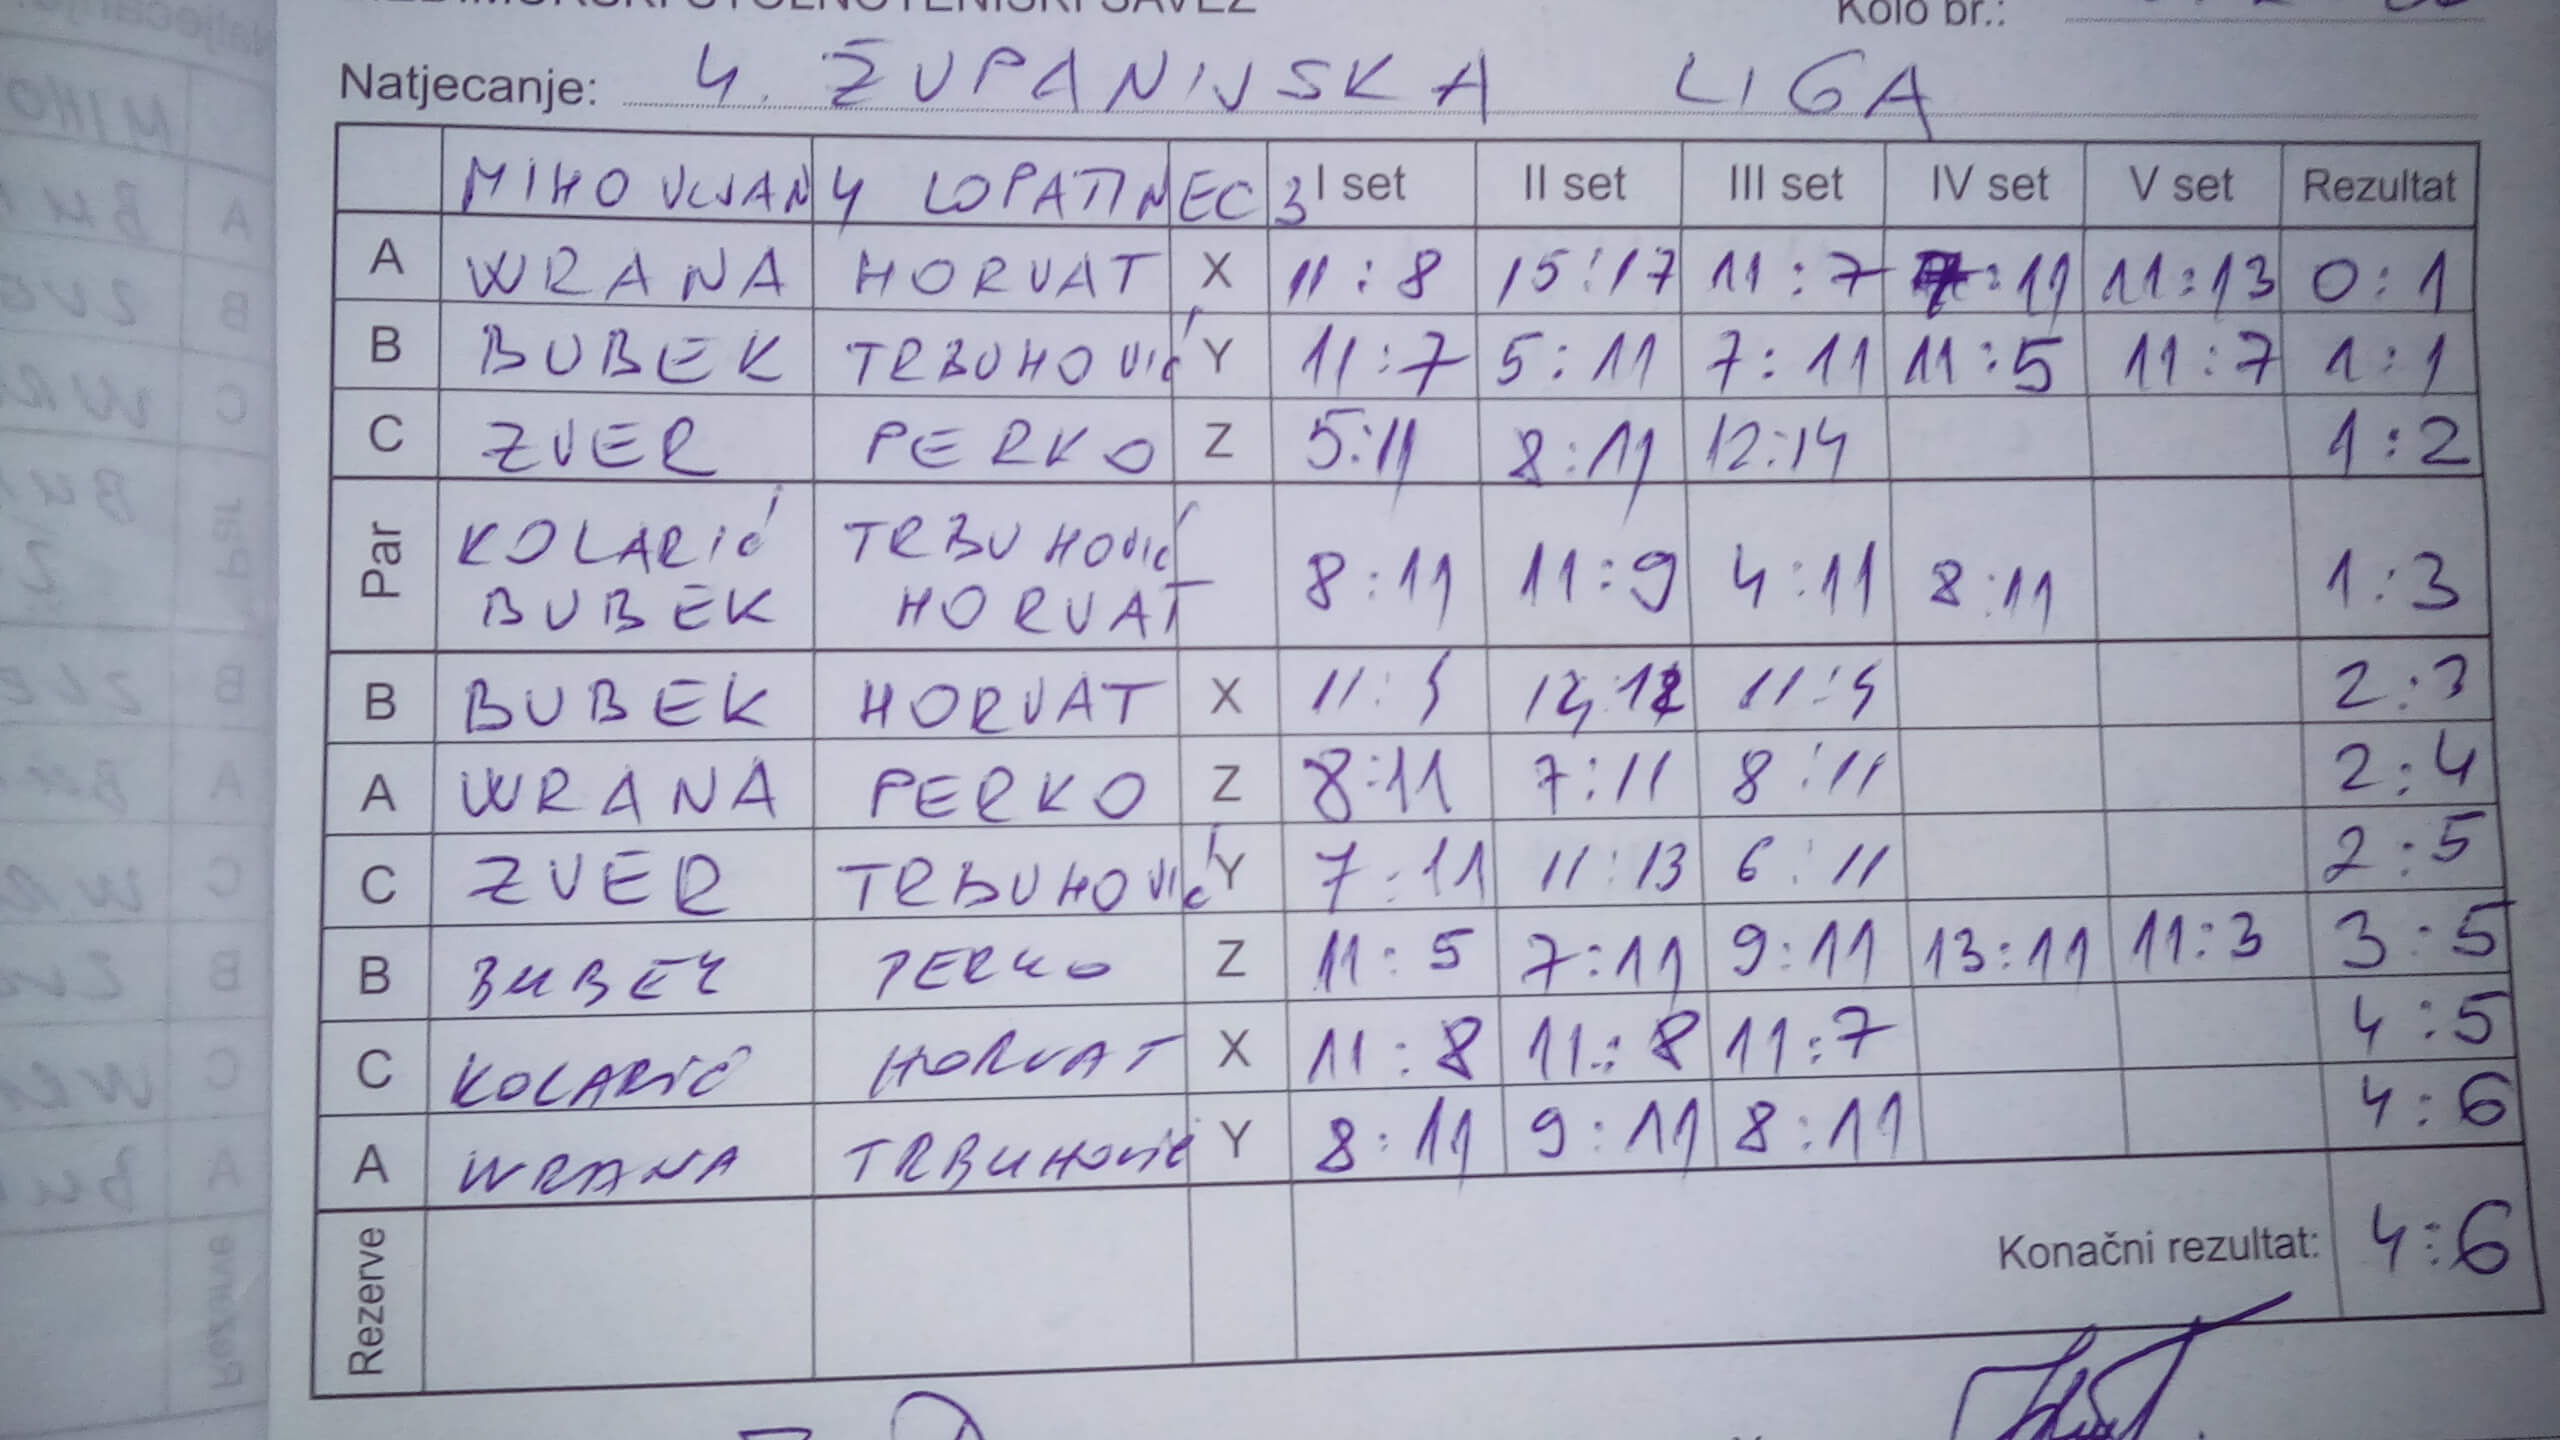 MEĐIMURSKI STOLNOTENISKI SAVEZ
Kolo br.:
Natjecanje: 4. ŽUPANIJSKA LIGA
MIHOVLJAN 4 LOPATINEC 3 I set II set III set IV set V set Rezultat
A WRANA HORVAT X 11:8 15:17 11:7 7:11 11:13 0:1
B BUBEK TRBUHOVIĆ Y 11:7 5:11 7:11 11:5 11:7 1:1
C ZVER PERKO Z 5:11 8:11 12:14 1:2
Par KOLARIĆ TRBUHOVIĆ
BUBEK HORVAT 8:11 11:9 4:11 8:11 1:3
B BUBEK HORVAT X 11: 14:12 11: 2:3
A WRANA PERKO Z 8:11 7:11 8:11 2:4
C ZVER TRBUHOVIĆ Y 7:11 11:13 6:11 2:5
B BUBEK PERKO Z 11:5 7:11 9:11 13:11 11:3 3:5
C KOLARIĆ HORVAT X 11:8 11:8 11:7 4:5
A WRANA TRBUHOVIĆ Y 8:11 9:11 8:11 4:6
Rezerve Konačni rezultat: 4:6